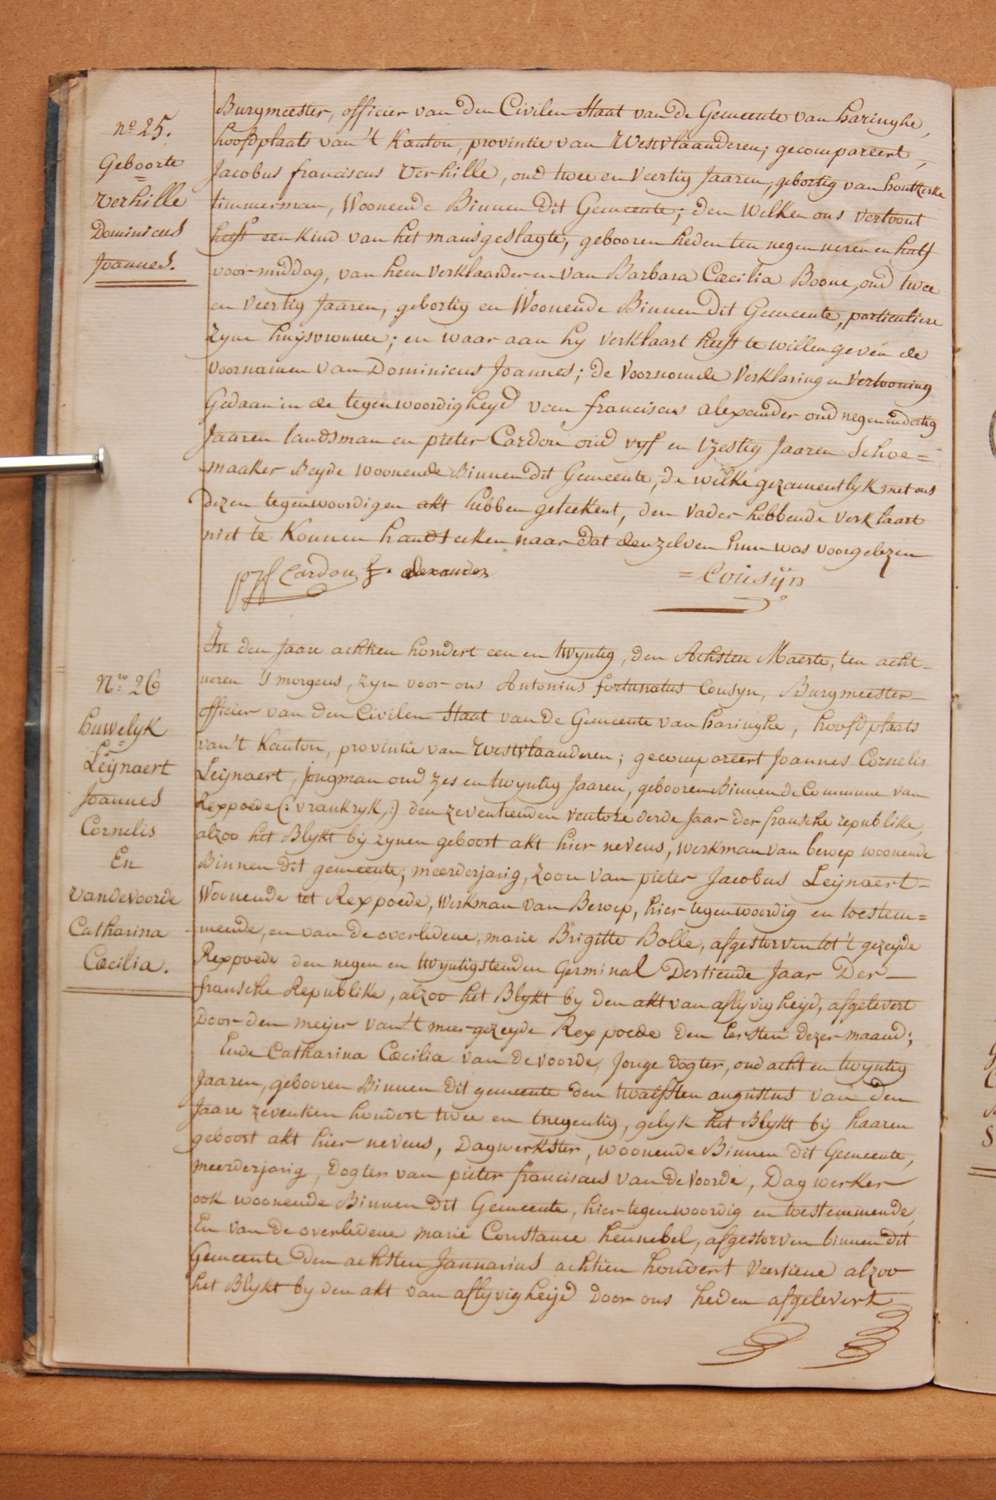 n.º 25.
Geboorte
=
Verhille
Dominicus
Joannes.
Burgmeester, officier van den Civilen Staat van de Gemeente van haringhe,
hoofdplaats van 't Kanton, provintie van Westvlaanderen; gecompareert,
Jacobus franciscus Verhille, oud twee en Veertig Jaaren, gebortig van houtkerke
timmerman, Woonende Binnen dit Gemeente; den Welken ons vertoont
heeft een kind van het mansgeslagte, gebooren heden ten negen uren en half
voormiddag, van hem Verklaarder en van Barbara Cæcilia Boone, oud twee
en Veertig Jaaren, gebortig en Woonende Binnen dit Gemeente, particuliere
Zyne huysvrouwe; en waar aan hy verklaart heeft te willen geven de
voornamen van Dominicus Joannes; de Voornoemde Verklaring en Vertooning
Gedaan in de tegenwoordigheyd van franciscus alexander oud negenendertig
Jaaren landsman en pieter Cardon oud vyf en tzestig Jaaren Schoe=
maaker Beyde woonende Binnen dit Gemeente, de welke gezamentlyk met ons
dezen tegenwoordigen akt hebben geteekent, den vader hebbende verklaart
niet te Konnen handteeken naar dat denzelven hun was voorgelezen
Cardon f. alexander = Cousÿn
N.ro 26
huwelyk
Leÿnaert
Joannes
Cornelis
En
Vandevoorde
Catharina
Cæcilia.
In den Jaare achtien hondert een en twyntig, den Achsten Maerte, ten acht
ueren 's morgens, zyn voor ons Antonius fortunatus Cousyn, Burgmeester
officier van den Civilen Staat van de Gemeente van haringhe, hoofdplaats
van 't Kanton, provintie van Westvlaanderen; gecompareert Joannes Cornelis
Leÿnaert, jongman oud zes en twyntig Jaaren, gebooren Binnen de Commune van
Rexpoede (: vrankryk,:) den zeventienden ventose derde Jaar der fransche republike,
alzoo het Blykt bij zynen geboort akt hier nevens, werkman van beroep woonende
Binnen dit gemeente; meerderjarig, zoon van pieter Jacobus Leÿnaert
Woonende tot Rexpoede, Werkman van Beroep, hier tegenwoordig en toestem=
mende, en van de overledene, marie Brigitte Bolle, afgestorven tot 't gezeyde
Rexpoede den negen en twyntigstenden Germinal Dertiende Jaar Der
fransche Republike, alzoo het Blykt by den akt van aflyvigheyd, afgelevert
Door den meijer van 't meer gezeyde Rexpoede den Eersten dezer maand;
Ende Catharina Cæcilia van de voorde, Jonge Dogter, oud acht en twyntig
Jaaren, gebooren Binnen dit gemeente den twalfsten augustus van den
Jaare zeventien hondert twee en tnegentig, gelyk het Blykt bij haaren
geboort akt hier nevens, Dagwerkster, woonende Binnen dit Gemeente,
meerderjarig, dogter van pieter franciscus van de Voorde, Dagwerker
ook woonende Binnen dit Gemeente, hier tegenwoordig en toestemmende,
En van de overledene marie Constance hennebel, afgestorven binnen dit
Gemeente den achsten Januarius achtien hondert Veertiene alzoo
het Blykt by den akt van aflyvigheijd Door ons heden afgelevert